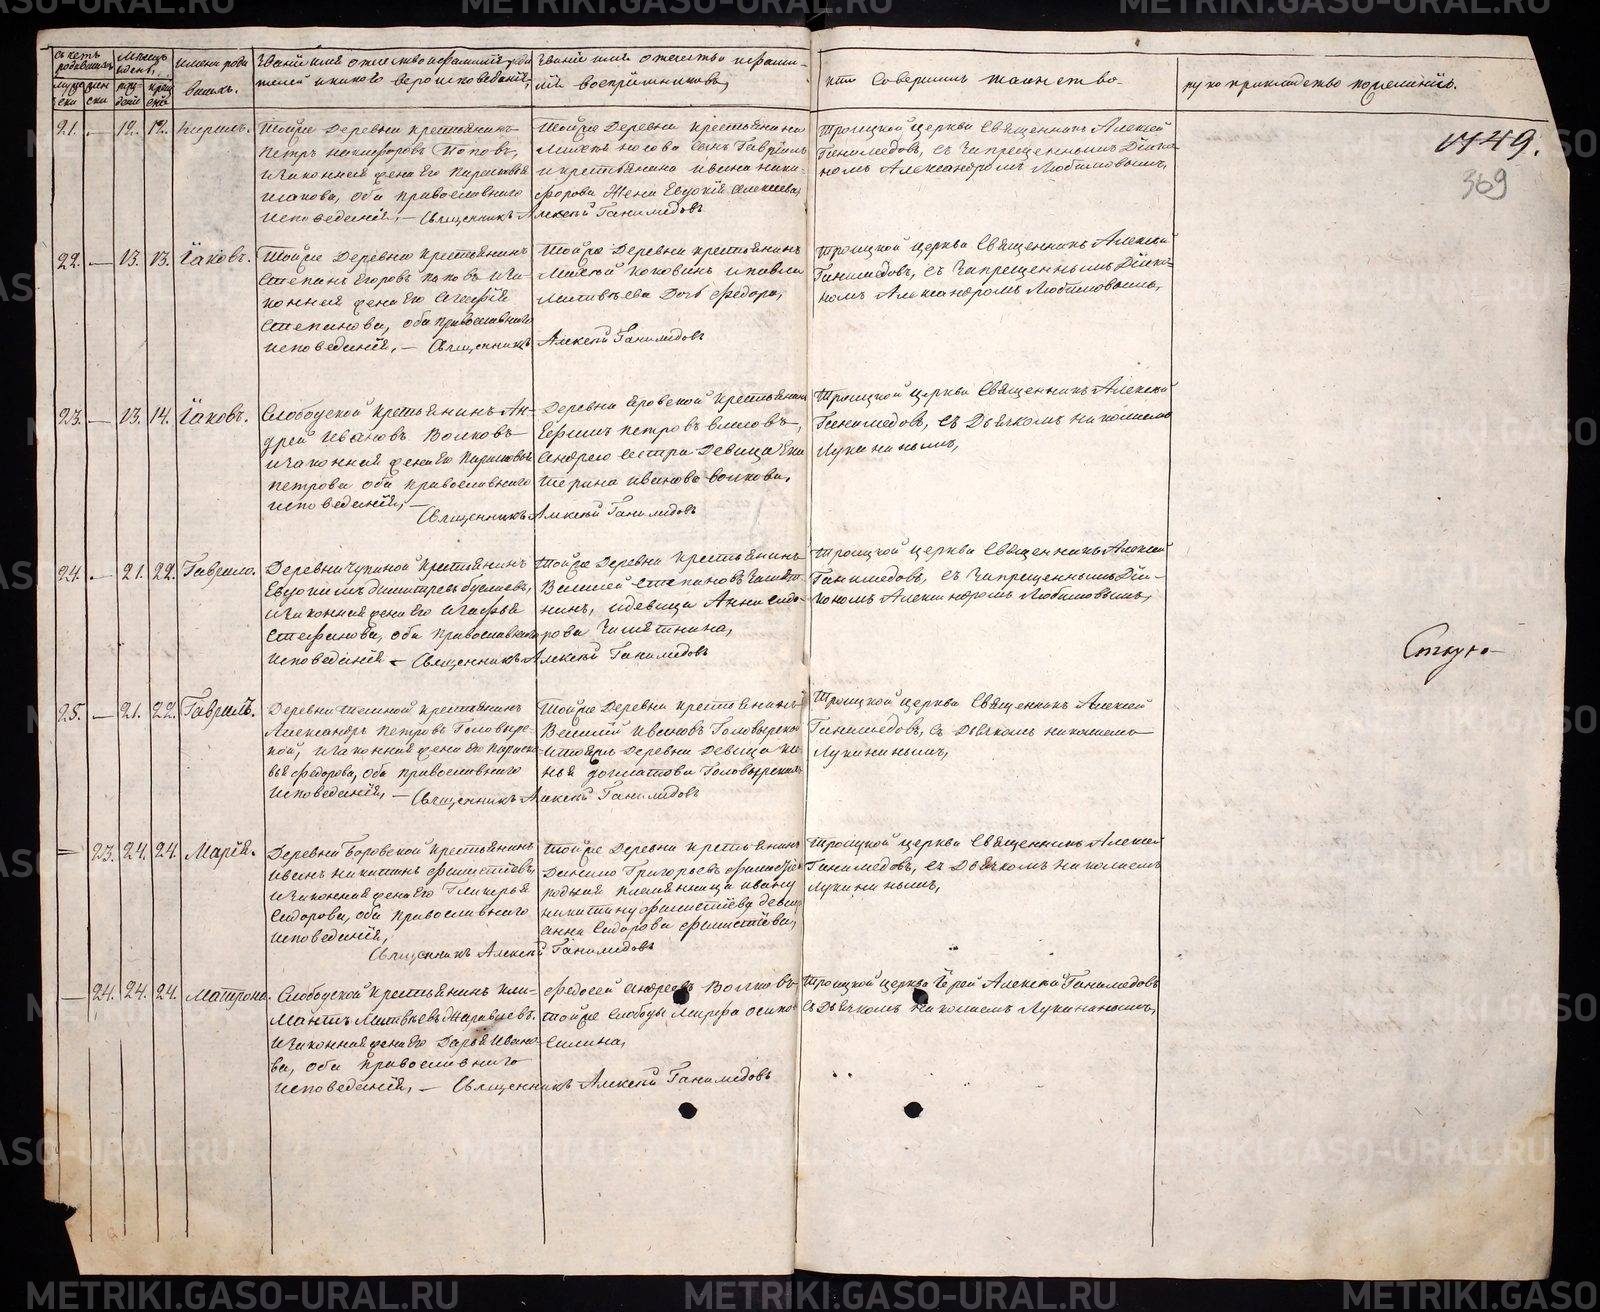 METRIKI.GASO-URAL.RU
счетъ родившихся
мужеска
женска
Мѣсяцъ и день
рожденiя
крещенiя
имена родившихъ.
Званiе имя отчество и фамилiя родителей и какого вероисповеданiя,
Званiе имя отчество и фамилiи воспрiемниковъ,
кто совершилъ таинство
рукоприкладство
1449.
369
21. — 12. 12. Кирилъ.
Тойже Деревни крестьянинъ
Петръ Никифоровъ Поповъ,
и законная жена Его Парасковья
Исакова, оба православнаго
исповеданiя, — Священникъ Алексѣй Ганимедовъ
Тойже Деревни крестьянина
сынъ Гаврiилъ
и крестьянина Ивана Ники-
форова Жена Евдокiя Алексеева,
Троицкой церкви Священникъ Алексѣй
Ганимедовъ, съ Запрещеннымъ Дiако-
номъ Александромъ Любимовымъ,
22. — 13. 13. Iаковъ.
Тойже Деревни Крестьянинъ
Степанъ Егоровъ Поповъ и за-
конная жена Его Агафiя
Степанова, оба православнаго
исповеданiя, — Священникъ Алексѣй Ганимедовъ
Тойже Деревни крестьянинъ
Коковинъ и Павла
Матвѣева Дочь Федора,
Троицкой церкви Священникъ Алексѣй
Ганимедовъ, съ Запрещеннымъ Дiако-
номъ Александромъ Любимовымъ,
23. — 13. 14. Iаковъ.
Слободской крестьянинъ Ан-
дрей Ивановъ Волковъ
и законная жена Его Парасковья
Петрова оба православнаго
исповеданiя, —
Священникъ Алексѣй Ганимедовъ
Деревни Боровской крестьянинъ
Ефимъ Петровъ
Андрею сестра Девица Ека-
терина Иванова Волкова,
Троицкой церкви Священникъ Алексѣй
Ганимедовъ, съ Дьячкомъ Николаемъ
Лукинымъ,
24. — 21. 22. Гаврило.
Деревни Чупиной Крестьянинъ
Евдокимъ Димитревъ
и законная жена Его Агафья
Стефанова, оба православнаго
исповеданiя — Священникъ Алексѣй Ганимедовъ
Тойже Деревни Крестьянинъ
Василей Степановъ Замят-
нинъ, и девица Анна Сидо-
рова Замятнина,
Троицкой церкви Священникъ Алексѣй
Ганимедовъ, съ Запрещеннымъ Дiа-
кономъ Александромъ Любимовымъ,
25. — 21. 22. Гаврiилъ.
Деревни крестьянинъ
Александръ Петровъ Головырс-
кой, и законная жена Его Параско-
вья Федорова, оба православнаго
исповеданiя, — Священникъ Алексѣй Ганимедовъ
Тойже Деревни крестьянинъ
Василiй Ивановъ Головырской
и тояжъ Деревни Девица
Головырская
Троицкой церкви Священникъ Алексѣй
Ганимедовъ, съ Дьячкомъ Николаемъ
Лукинымъ,
— 23. 24. 24. Марiя.
Деревни Боровской крестьянинъ
Иванъ Никитинъ Филистѣевъ,
и законная жена Его Гликерья
Сидорова, оба православнаго
исповеданiя,
Священникъ Алексѣй Ганимедовъ
Тойже Деревни крестьянинъ
Данило Григорьевъ
родная племянница Ивану
Никитину Филистѣеву девица
Анна Сидорова Филистѣева,
Троицкой церкви Священникъ Алексѣй
Ганимедовъ, съ Дьячкомъ Николаемъ
Лукинымъ,
— 24. 24. 24. Матрона.
Слободской Крестьянинъ Кли-
ментъ Матвѣевъ
и законная жена Его Дарья Ивано-
ва, оба православнаго
исповеданiя, — Священникъ Алексѣй Ганимедовъ
Федосей Андреевъ Волковъ
тойже слободы Марфа
Троицкой церкви Iерей Алексѣй Ганимедовъ
съ Дьячкомъ Николаемъ Лукинымъ,